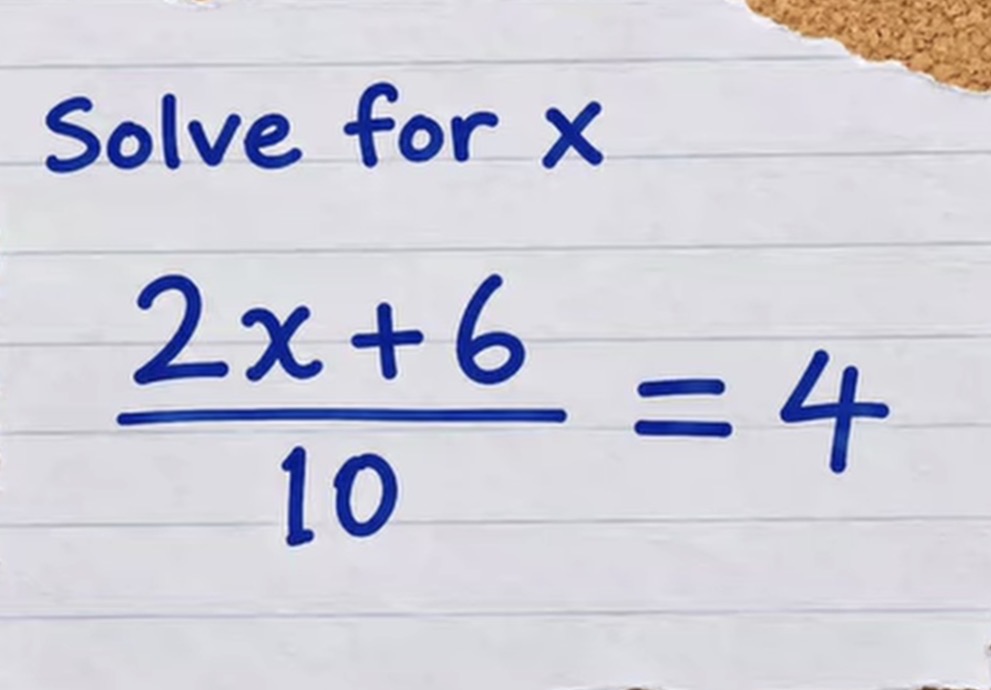 Solve for x
2x + 6
10
= 4